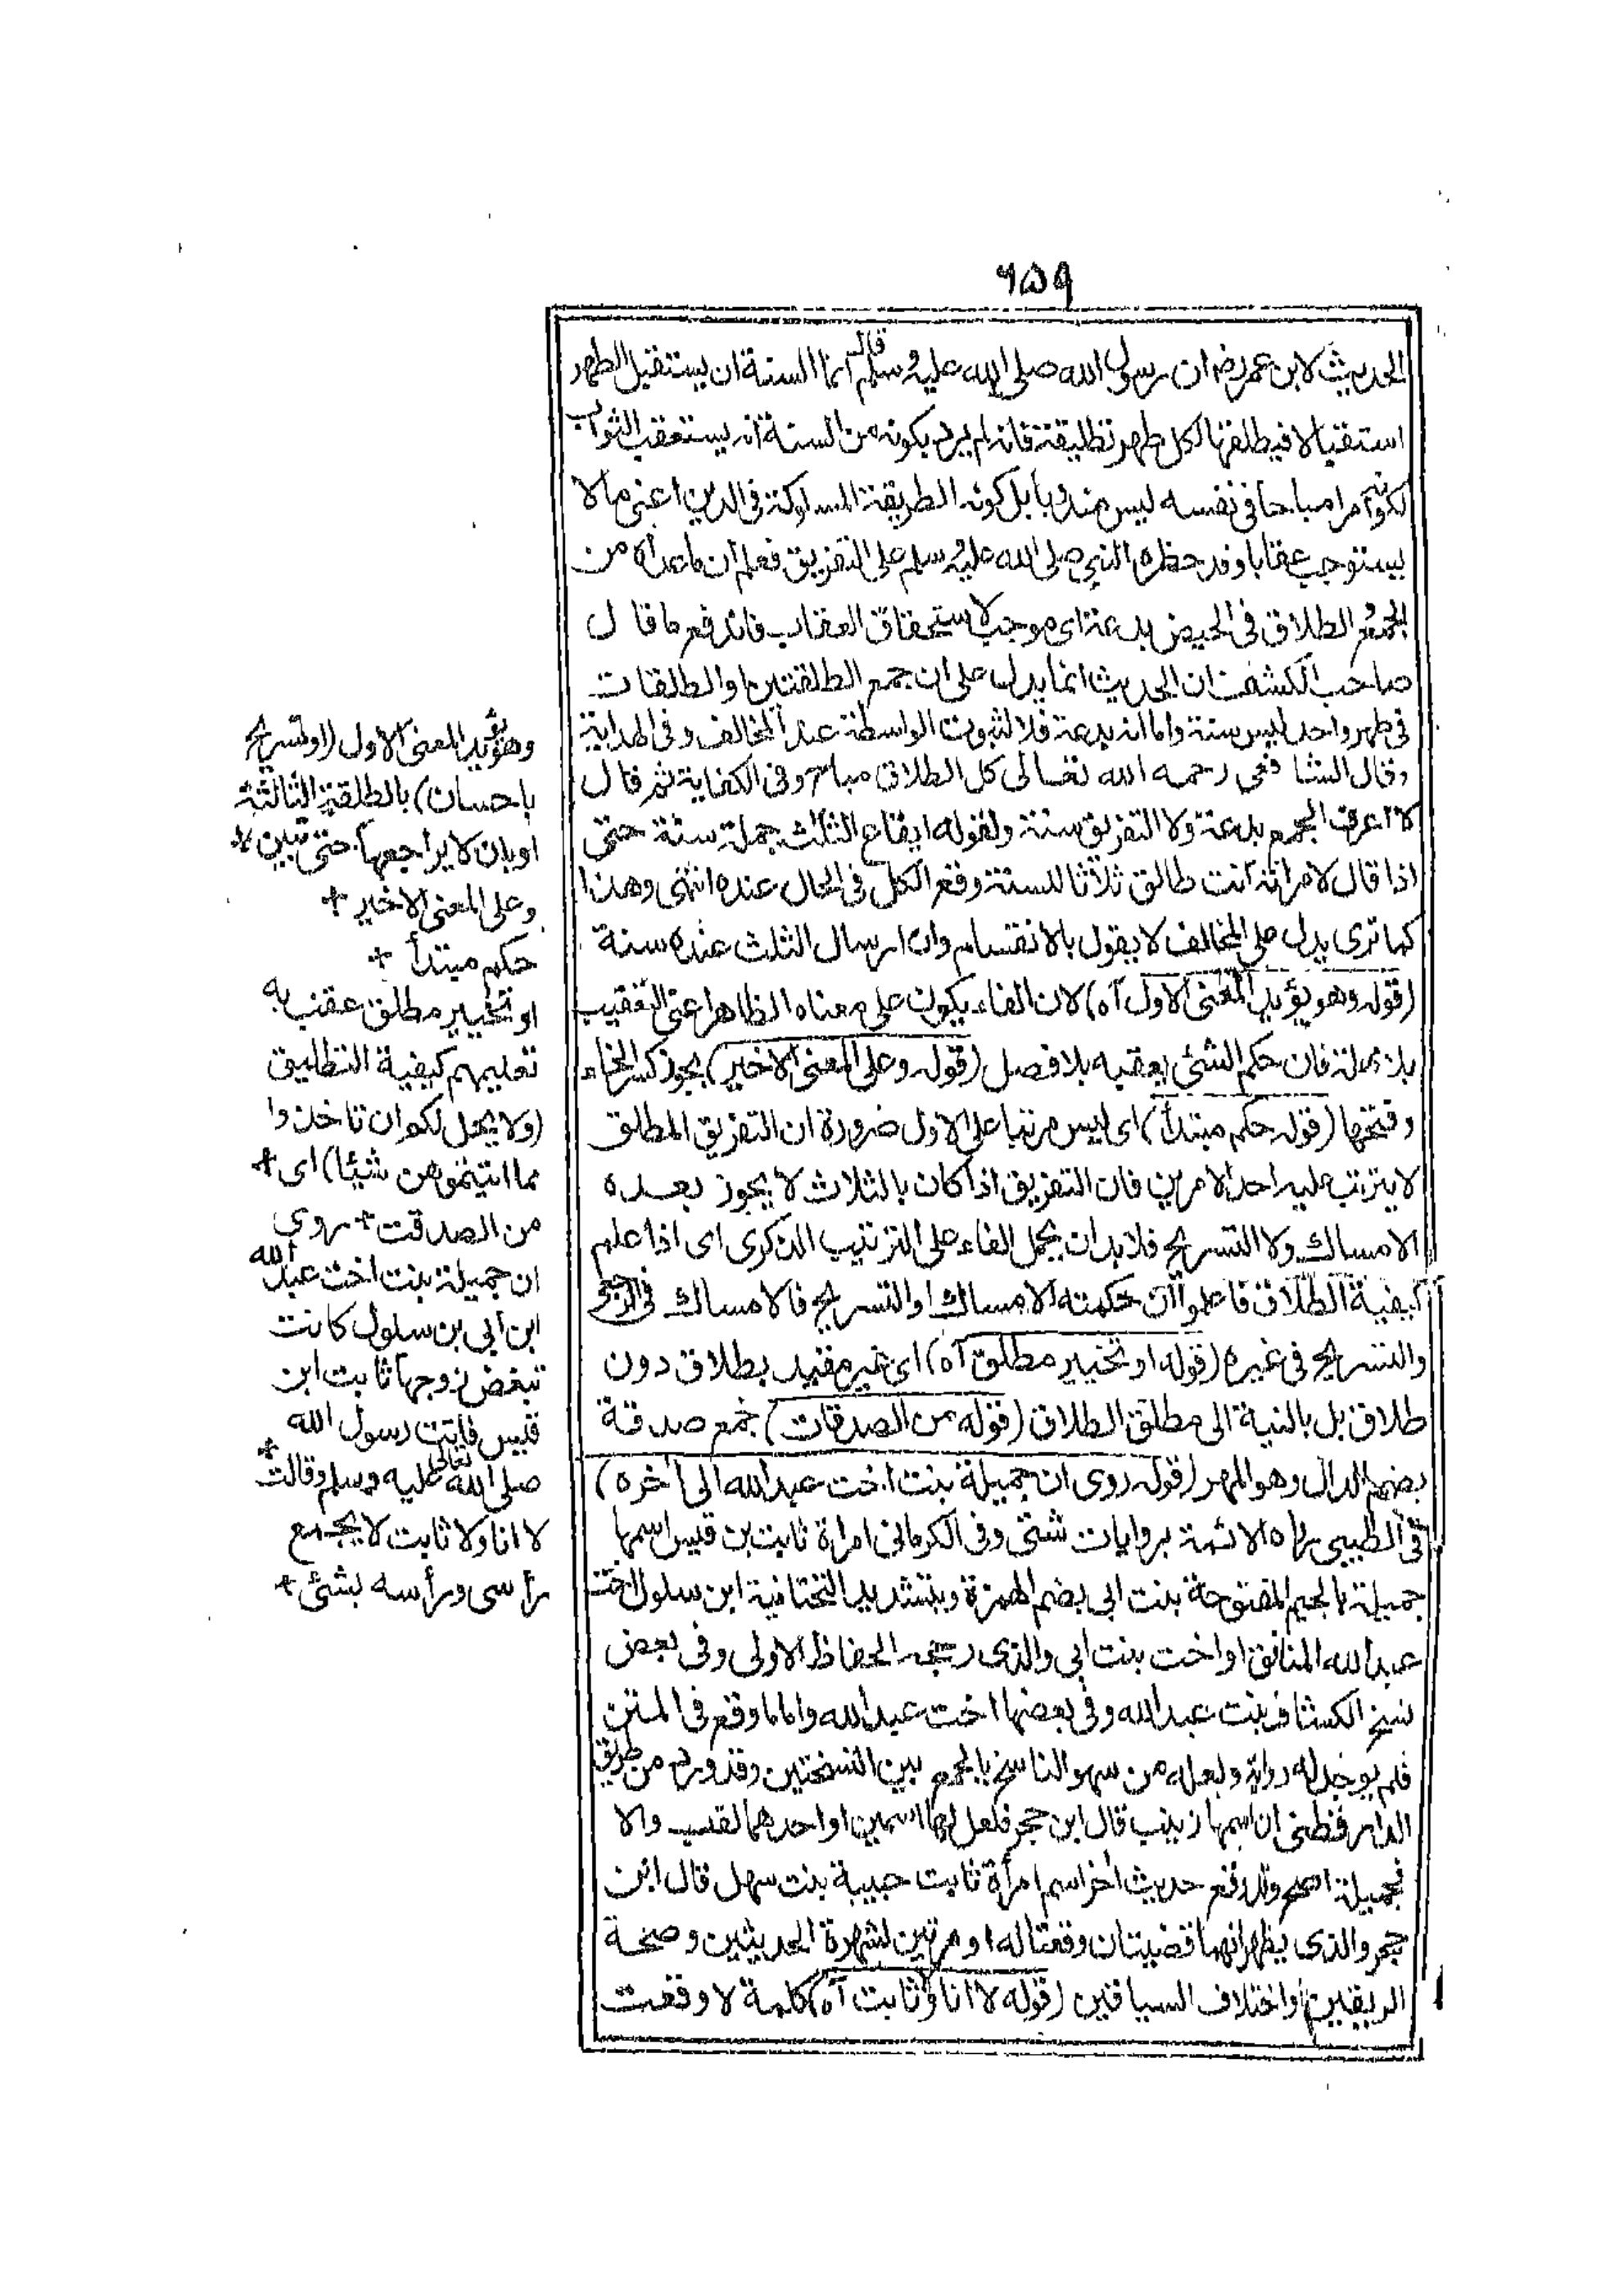 ٦٥٩
الحديث لابن عمر رضه ان رسول الله صلى الله عليه وسلم قال انما السنة ان يستقبل الطهر
استقبالا فيطلقها لكل طهر تطليقة فانه لم يرد بكونه من السنة انه يستعقب الثواب
لكونه امرا مباحا في نفسه ليس مندوبا بل كونه الطريقة المسلوكة في الدين اعني مالا
يستوجب عقابا وقد حظره النبي صلى الله عليه وسلم على التفريق فعلم ان ما عداه من
الجمع والطلاق في الحيض بدعة اى موجب لاستحقاق العقاب فاندفع ما قال
صاحب الكشف ان الحديث انما يدل على ان جمع الطلقتين او الطلقات
في طهر واحد ليس سنة واما انه بدعة فلا لثبوت الواسطة عند المخالف وفى الهداية
وقال الشافعى رحمه الله تعالى كل الطلاق مباح وفى الكفاية ثم قال
لا اعرف الجمع بدعة ولا التفريق سنة ولقوله ايقاع الثلث جملة سنة حتى
اذا قال لامرأته انت طالق ثلاثا للسنة وقع الكل فى الحال عنده انتهى وهذا
كما ترى يدل على المخالف لا يقول بالانقسام وان ارسال الثلث عنده سنة
(قوله وهو يؤيد المعنى الاول آه) لان الفاء يكون على معناه الظاهر اعنى التعقيب
بلا مهلة فان حكم الشئ يعقبه بلا فصل (قوله وعلى المعنى الاخير) يجوز كسر الخاء
وفتحها (قوله حكم مبتدأ) اى ليس مرتبا على الاول ضرورة ان التفريق المطلق
لا يترتب عليه احد الامرين فان التفريق اذا كان بالثلاث لا يجوز بعده
الامساك ولا التسريح فلا بد ان يحمل الفاء على الترتيب الذكرى اى اذا علم
كيفية الطلاق فاعلموا ان حكمته الامساك او التسريح فالامساك فى الرجعى
والتسريح فى غيره (قوله او تخيير مطلق آه) اى غير مقيد بطلاق دون
طلاق بل بالنية الى مطلق الطلاق (قوله من الصدقات) جمع صدقة
بضم الدال وهو المهر (قوله روى ان جميلة بنت اخت عبد الله الى آخره)
فى الطيبى رواه الائمة بروايات شتى وفى الكرمانى امراة ثابت بن قيس اسمها
جميلة بالجيم المفتوحة بنت ابى بضم الهمزة وبتشديد التحتانية ابن سلول اخت
عبد الله المنافق او اخت بنت ابى والذى رجحه الحفاظ الاولى وفى بعض
نسخ الكشاف بنت عبد الله وفى بعضها اخت عبد الله واما ما وقع فى المتن
فلم يوجد له رواية ولعله من سهو الناسخ بالجمع بين النسختين وقد ورد من طريق
الدار قطنى ان اسمها زينب قال ابن حجر فلعل لها اسمين او احدهما لقب والا
فجميلة اصح وقد وقع حديث آخر اسم امرأة ثابت حبيبة بنت سهل قال ابن
حجر والذى يظهر انهما قضيتان وقعتا له او مرتين لشهرة الحديثين وصحة
الريقين واختلاف السياقين (قوله لا انا ولا ثابت آه) كلمة لا وقعت
وهو يؤيد المعنى الاول (او تسريح
باحسان) بالطلقة الثالثة
او بان لا يراجعها حتى تبين
وعلى المعنى الاخير +
حكم مبتدأ +
او تخيير مطلق عقب به
تعليمهم كيفية التطليق
(ولا يحل لكم ان تاخذوا
مما اتيتموهن شيئا) اى +
من الصدقت + روى
ان جميلة بنت اخت عبد الله
ابن ابى بن سلول كانت
تبغض زوجها ثابت ابن
قيس فاتت رسول الله
صلى الله تعالى عليه وسلم وقالت +
لا انا ولا ثابت لا يجمع
رأسى ورأسه بشئ +